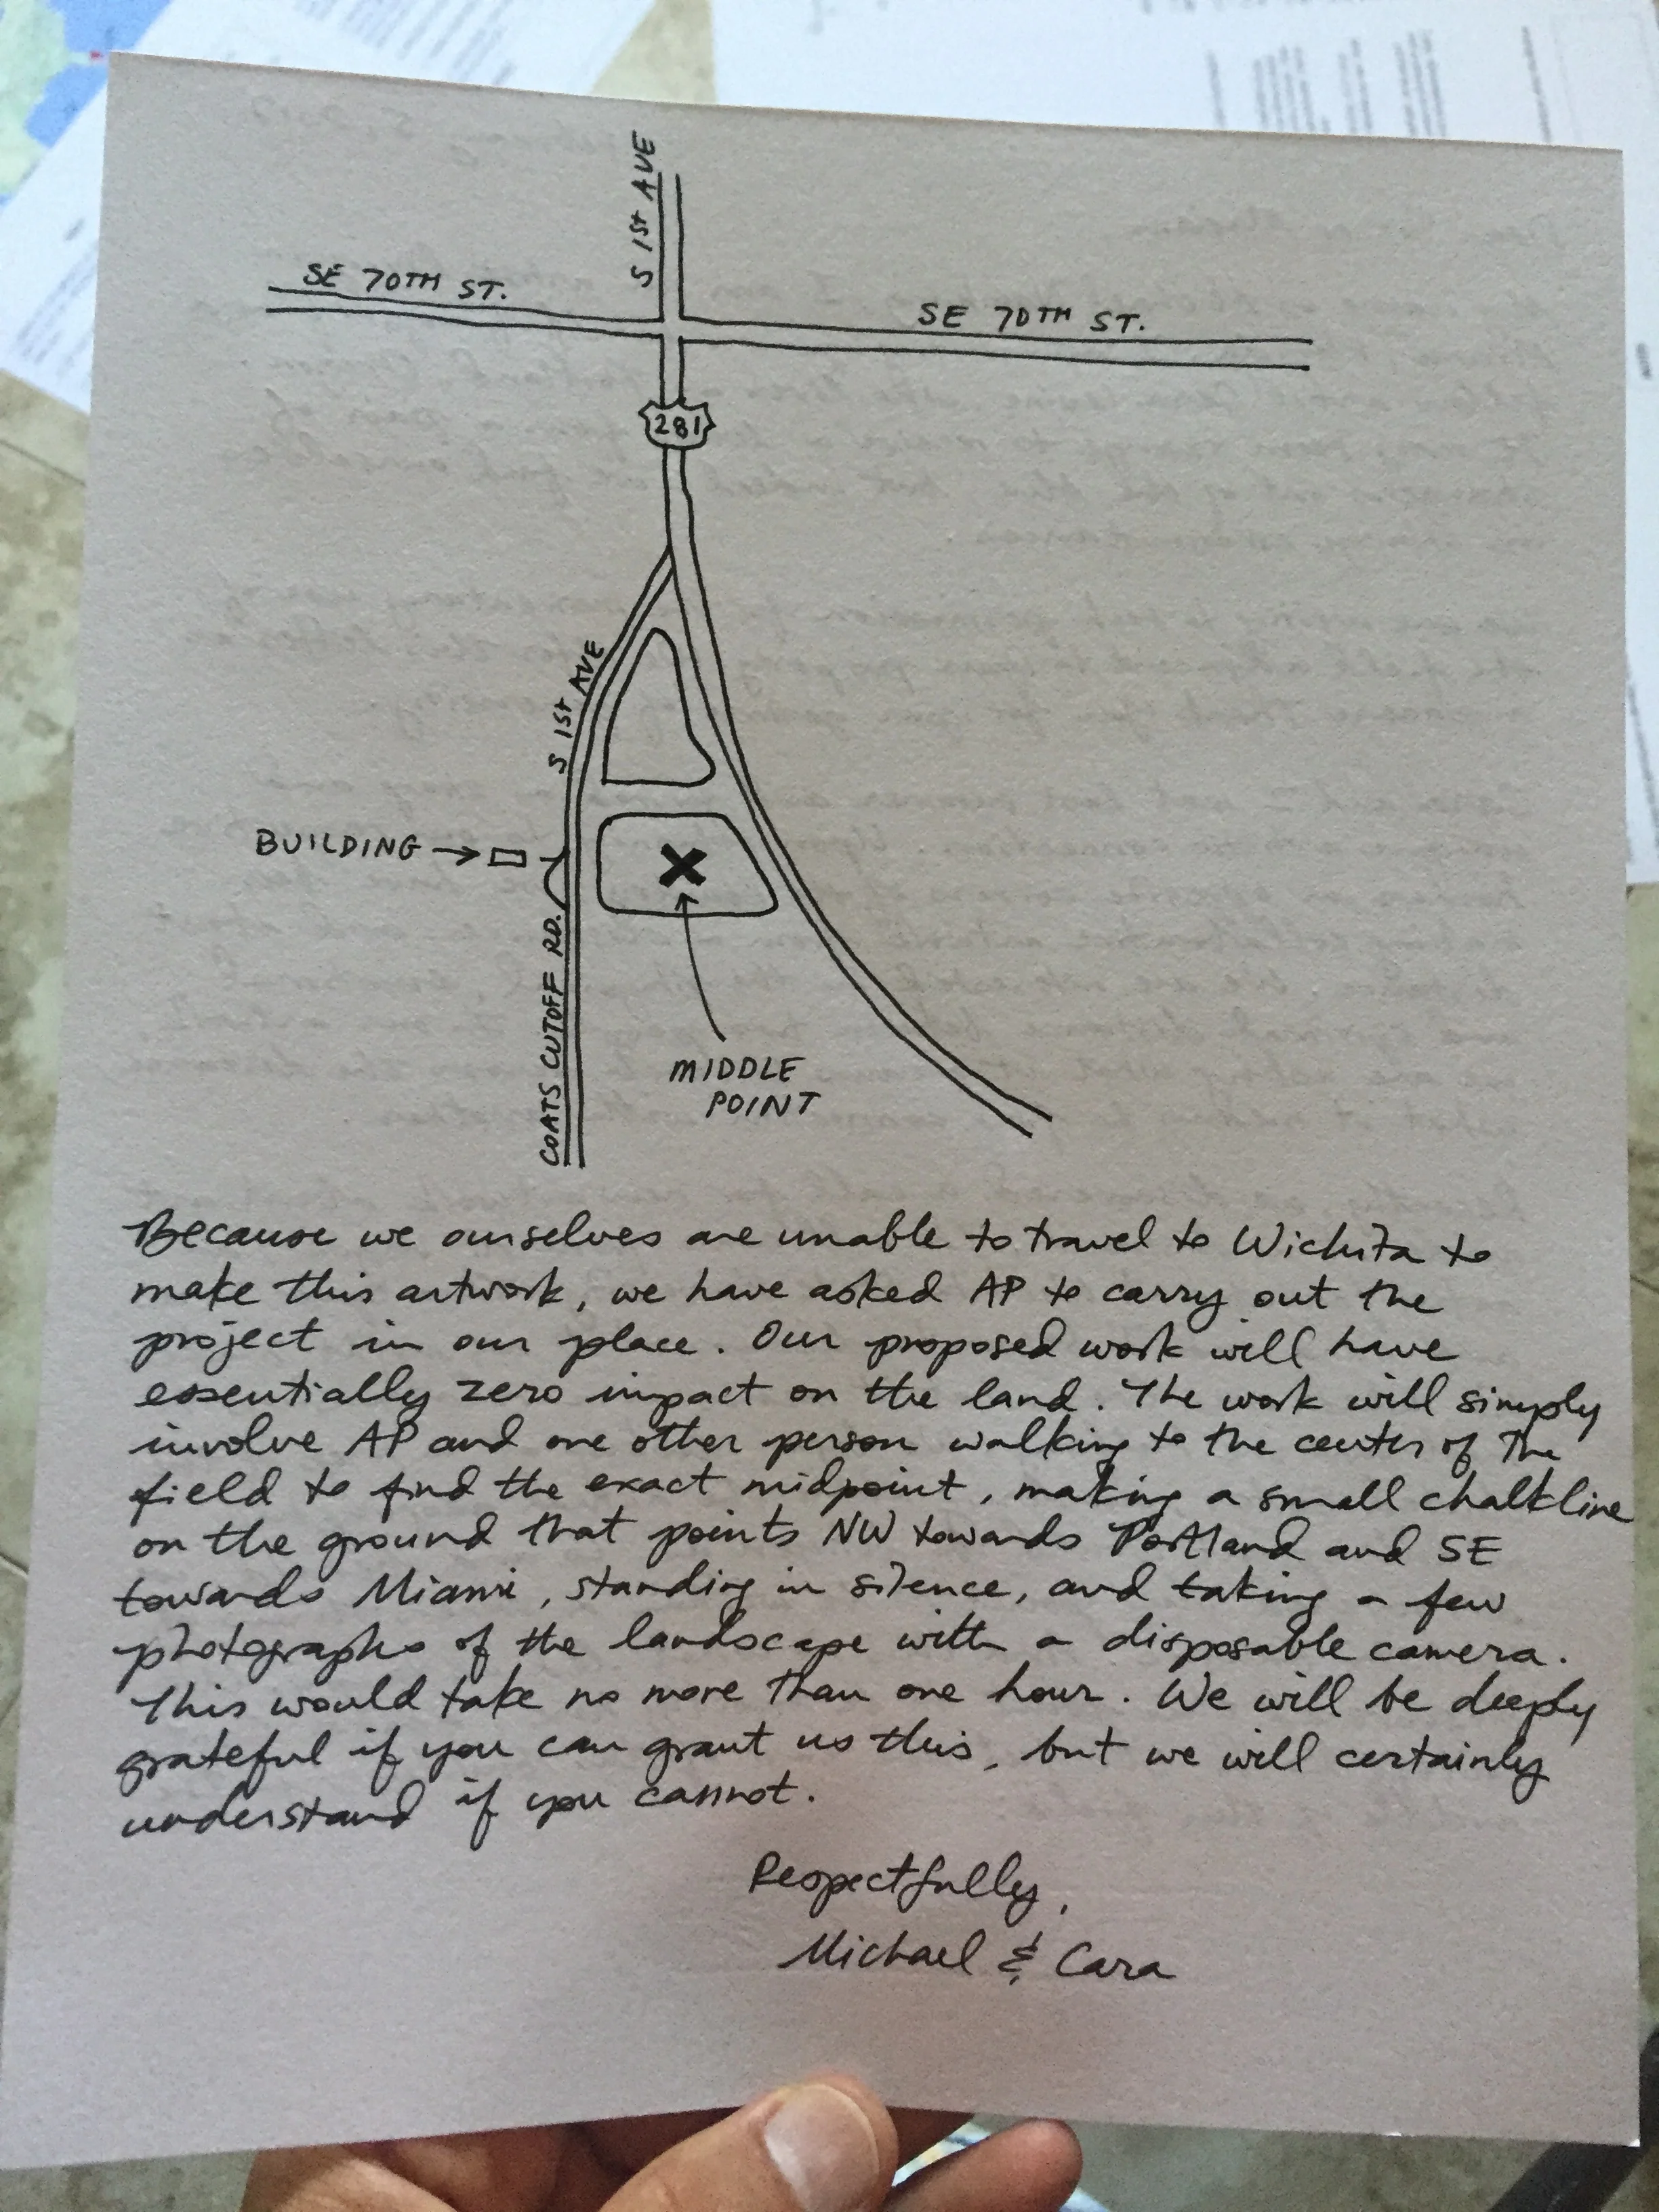 S 1ST AVE
SE 70TH ST.
SE 70TH ST.
281
S 1ST AVE
BUILDING
COATS CUTOFF RD.
MIDDLE
POINT
Because we ourselves are unable to travel to Wichita to
make this artwork, we have asked AP to carry out the
project in our place. Our proposed work will have
essentially zero impact on the land. The work will simply
involve AP and one other person walking to the center of the
field to find the exact midpoint, making a small chalkline
on the ground that points NW towards Portland and SE
towards Miami, standing in silence, and taking a few
photographs of the landscape with a disposable camera.
This would take no more than one hour. We will be deeply
grateful if you can grant us this, but we will certainly
understand if you cannot.
Respectfully,
Michael & Cara